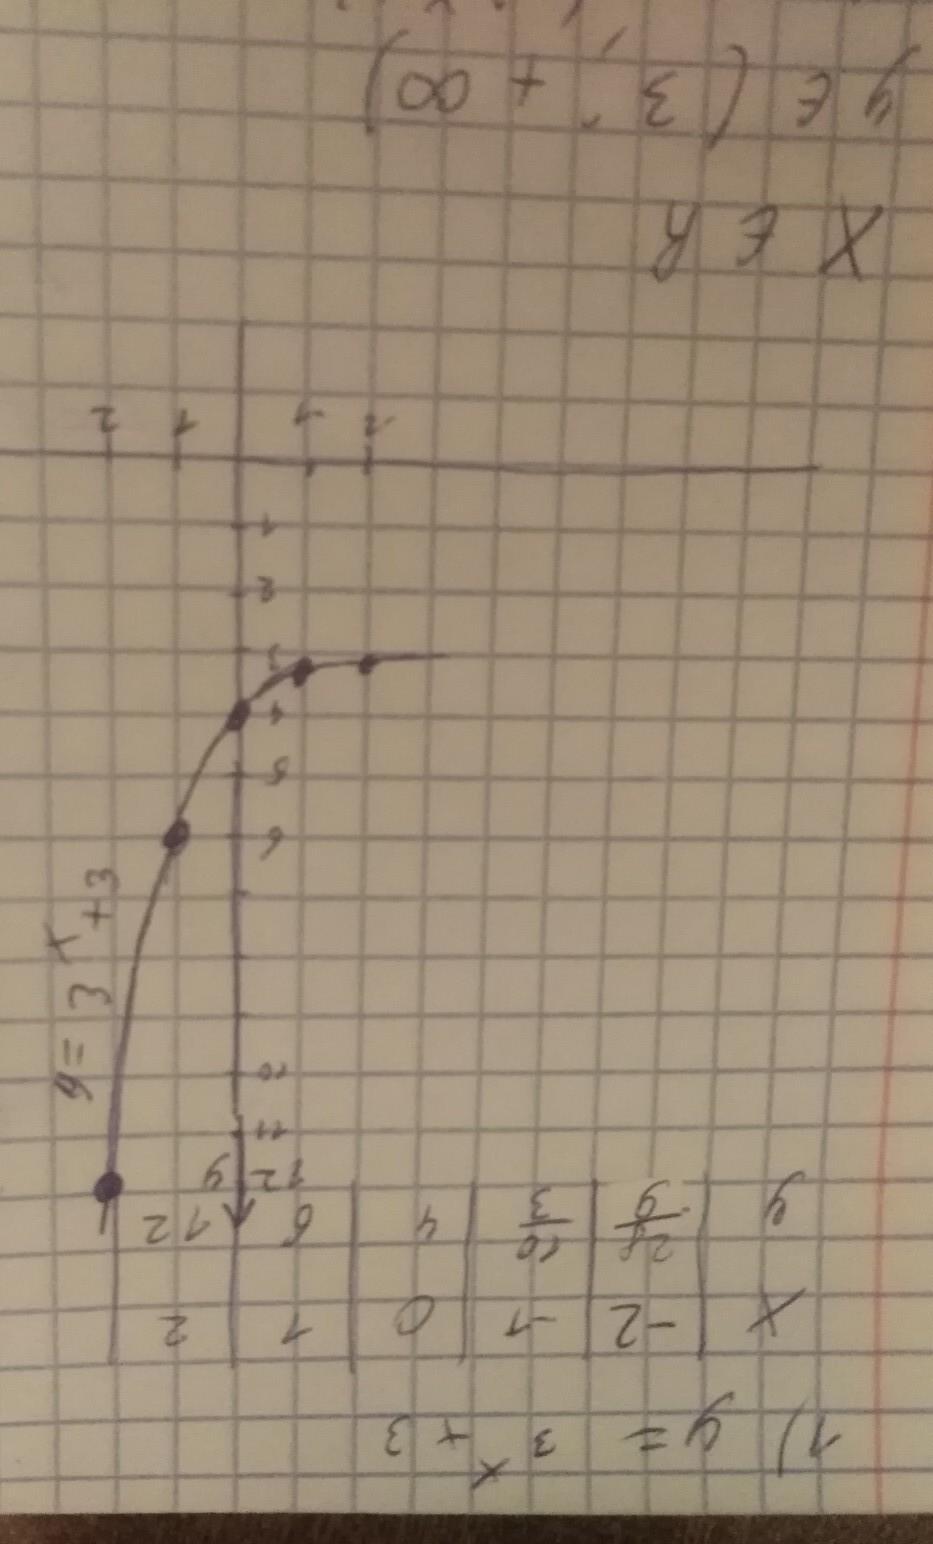 1) y = 3^x + 3
x | -2 | -1 | 0 | 1 | 2
y | 28/9 | 10/3 | 4 | 6 | 12
y
12
11
10
6
5
4
3
2
1
-2 -1 1 2
y = 3^x + 3
X ∈ R
y ∈ (3; +∞)